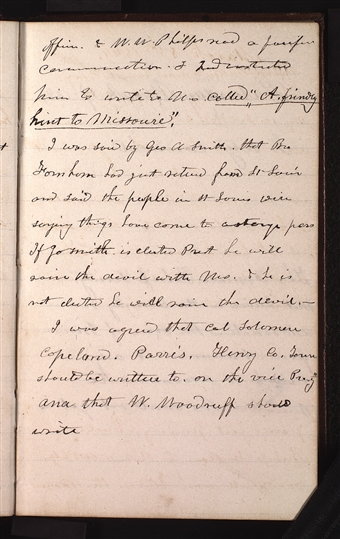 office. & W. W. Phelps read a
communication. & I instructed
him to write to Mo called, "A friendly
hint to Missouri",
I was said by Geo A Smith. that Bro
Farnham had just retured from St Louis
and said the people in St Louis were
saying things have come to a strange pass
If Jo smith is elected Prest he will
raise the devil with Mo. & if he is
not elected he will raise the devil.—
I was agreed that Col Solomon
Copeland. Parris. Henry Co. Tenn
should be written to. on the vice Prey
and that W. Woodruff should
write